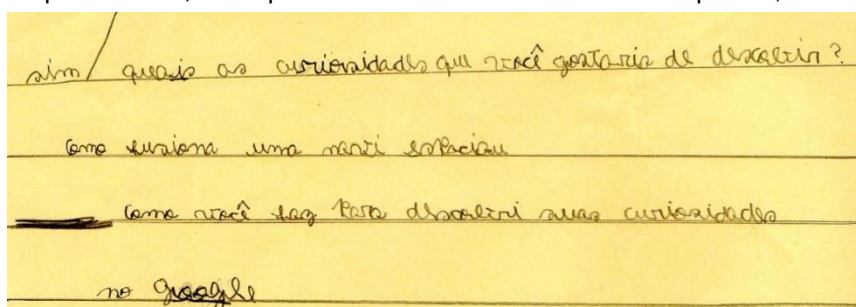 sim/ quais as curiosidades que você gostaria de descobrir?
Como fusiona uma navi espaciau
Como você faz para descobri suas curiosidades
no google